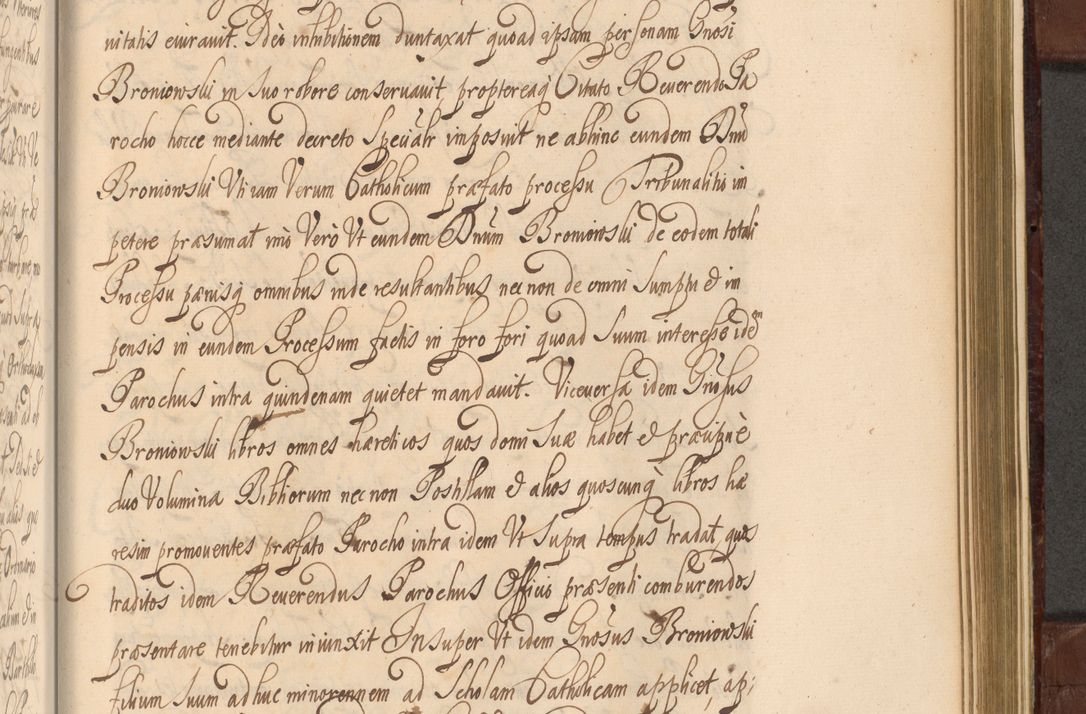 nitatis eiuravit. Ideo inhibitionem duntaxat quoad ipsam personam Gnosi
Broniowski in suo robore conservavit, propterea q̃ Citato Reverendo Pa
rocho hocce mediante decreto speciali imposuit ne abhinc eundem Dnũ
Broniowski Uti iam Verum Catholicum præfato processu Tribunalitio im
petere præsumat imò Verò Ut eundem Dnũm Broniowski de eodem totali
Processu pænisq̃ omnibus inde resultantibus nec non de omni sumptu & im
pensis in eundem Processum factis in foro fori quoad suum interesse idem
Parochus intra quindenam quietet mandavit. Viceversa idem Gnosus
Broniowski libros omnes hæreticos quos domi suæ habet & præcipuè
duo Volumina Bibliorum nec non Postillam & alios quoscunq̃ libros hæ
resim promoventes præfato Parocho intra idem Ut supra tempus tradat, quos
traditos idem Reverendus Parochus Officio præsenti comburendos
præsentare tenebitur iniunxit Insuper Ut idem Gnosus Broniowski
filium suum adhuc minorennem ad Scholam Catholicam applicet, ap;